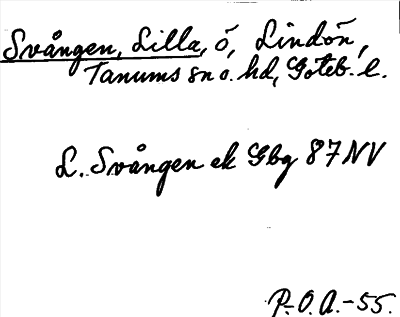 Svången, Lilla, ö, Lindön,
Tanums sn o. hd, Göteb. l.
L. Svången ek Gbg 87 NV
P.O.A.-55.